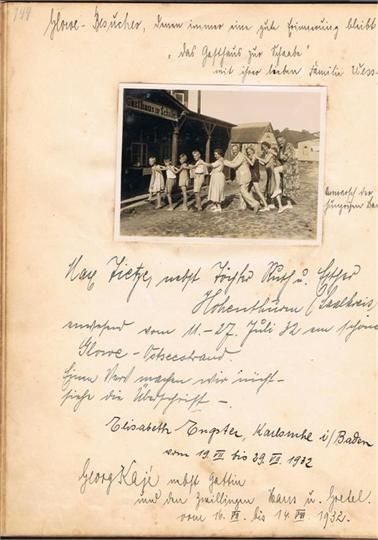 148
Glowe - Besucher, denen immer eine gute Erinnerung bleibt
"Das Gasthaus zur Schaabe"
mit ihrer lieben Familie Wess-
Gasthaus zur Schaabe
der
Max Tietze, nebst Töchter Ruth u. Esther
Hohenthurm (Saalkreis)
anwesend vom 11.-27. Juli 32 am schöne
Glowe - Ostseestrand.
Einen Vers machen wir nicht -
siehe die Überschrift -.
Elisabeth Engster, Karlsruhe i/Baden
vom 19. VII bis 29. VII. 1932
Georg Kaje nebst Gattin
und den Zwillingen Hans u. Gretel.
vom 16. VII. bis 14. VIII. 1932.